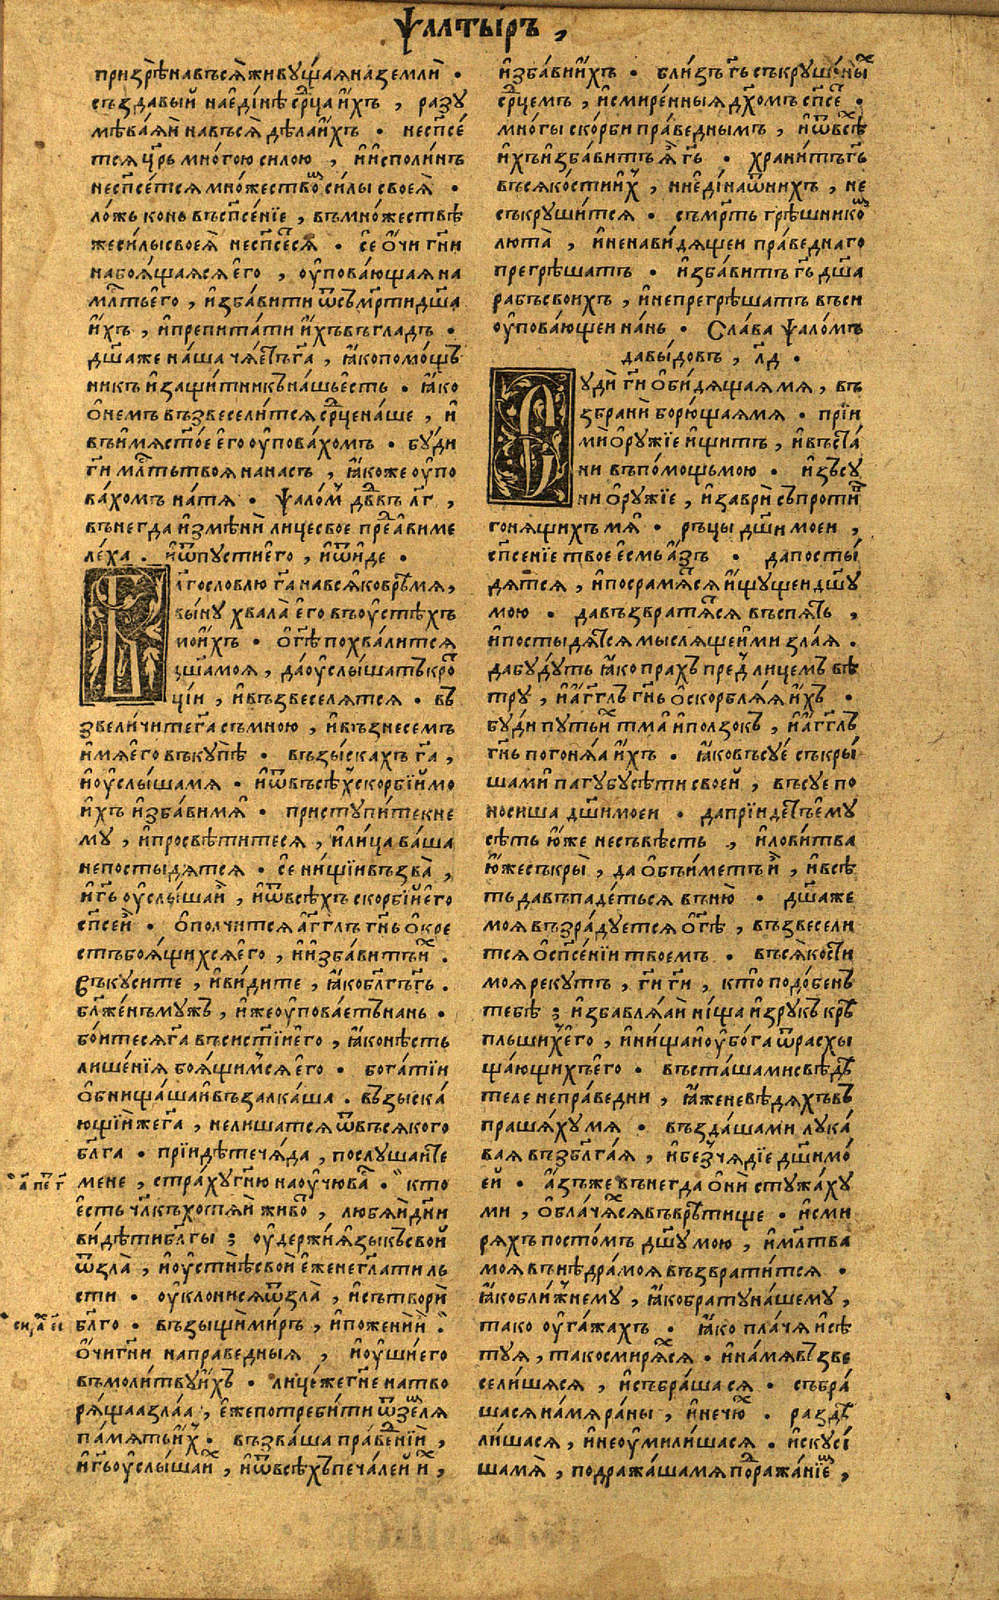 Ѱалтырь ,
призрѣ на въсѧ живущаѧ на земли .
създавый наединѣ срдца ихъ , разу
мѣваѧи на въсѧ дѣла ихъ . не спсе
тсѧ црь многою силою , и исполинъ
не спсетсѧ множествомъ силы своеѧ .
ложь конь въ спсенїе , въ множествѣ
же силы своеѧ не спсесѧ . се очи гни
на боѧщаѧсѧ его , уповающаѧ на
млть его , избавити ѿ смрти дша
ихъ , и препитати ихъ въ гладъ .
дша же наша чѧетъ га , ꙗко помощъ
никъ и защитникъ нашь есть . ꙗко
о немъ възвеселитсѧ срдце наше , и
въ имѧ стое его уповахомъ . буди
ги млть твоѧ на насъ , ꙗкоже упо
вахомъ на тѧ . Ѱаломъ двдвъ лг ,
вънегда измѣни лице свое пред авиме
леха . и ѿпусти его , и ѿиде .
лгословлю га на всѧко врѣмѧ ,
выну хвала его въ устѣхъ
моихъ . о гѣ похвалитсѧ
дша моѧ , да услышатъ кро
ции , и възвеселѧтсѧ . въ
звеличите га съ мною , и възнесемъ
имѧ его въкупѣ . възыскахъ га ,
и услыша мѧ . и ѿ въсѣхъ скорбїй мо
ихъ избави мѧ . приступите к не
му , и просвѣтитесѧ , и лица ваша
не постыдѧтсѧ . се нищїи възва ,
и гь услыша и , и ѿ всѣхъ скорбїй его
спсе и . ополчитсѧ агглъ гнь окре
стъ боѧщихсѧ его , и избавитъ ихъ .
Въкусите , и видите , ꙗко блгъ гь .
блженъ мужъ , иже уповаетъ на нь .
боитесѧ га въси стїи его , ꙗко нѣсть
лишенїѧ боѧщимсѧ его . богатїи
обнищаша и възалкаша . възыска
ющїи же га , не лишатсѧ ѿ въсѧкого
блга . прїидѣте чѧда , послушайте
мене , страху гню научю ва . кто
есть члкъ хотѧй живот , любѧи дни
видѣти блгы ; удержи ѧзыкъ свой
ѿ зла , и устнѣ свои еже не глати ль
сти . уклонисѧ ѿ зла , и сътвори
благо . възыщи миръ , и пожени и .
очи гни на праведныѧ , и уши его
въ молитву ихъ . лице же гне на тво
рѧщаѧ злаѧ , еже потребити ѿ землѧ
памѧть ихъ . възваша праведнїи ,
и гь услыша ихъ , и ѿ всѣхъ печалей ихъ ,
избави ихъ . близъ гь съкрушеныхъ
срдцемъ , и смиренныѧ дхомъ спсе .
многы скорби праведнымъ , и ѿ всѣхъ
ихъ избавитъ ѧ гь . хранитъ гь
въсѧ кости ихъ , ни едина ѿ нихъ , не
съкрушитсѧ . съмрть грѣшником
люта , и ненавидѧщеи праведнаго
прегрѣшатъ . избавитъ гь дша
рабъ своихъ , и не прегрѣшатъ въси
уповающеи на нь . Слава Ѱаломъ
давыдовъ , лд .
Суди ги обидѧщаѧ мѧ , въ
збрани борющаѧ мѧ . прїи
ми оружїе и щитъ , и въста
ни въ помощь мою . изъсу
ни оружїе , и заври съпротив
гонѧщихъ мѧ . рьцы дши моеи ,
спсенїе твое есмь азъ . да посты
дѧтсѧ , и посрамѧтсѧ ищущеи дшу
мою . да възвратѧтсѧ въспѧть ,
и постыдѧтсѧ мыслѧщеи ми злаѧ .
да будуть ꙗко прахъ пред лицемъ вѣ
тру , и агглъ гнь оскорблѧѧ ихъ .
буди путь их тма и ползокъ , и агглъ
гнь погонѧа ихъ . ꙗко въсуе съкры
ша ми пагубу сѣти своей , въсуе по
носиша дши моеи . да прїидетъ ему
сѣть юже не съвѣсть , и ловитва
юже съкры , да объиметъ и , и в сѣ
ть да въпадетьсѧ в ню . дша же
моѧ възрадуетсѧ о гѣ , възвесели
тсѧ о спсенїи твоемъ . въсѧ кости
моѧ рекутъ , ги ги , кто подобенъ
тебѣ ; избавлѧаи нища из рукъ крѣ
пльших его , и нища и убога ѿ расхы
щающихъ его . въсташа ми свѣдѣ
теле неправедни , ꙗже не вѣдѧхъ въ
прашѧху мѧ . въздаша ми лука
ваѧ въз благаѧ , и безчѧдїе дши мо
ей . азъ же вънегда они стужаху
ми , облачѧхсѧ въ врѣтище . и сми
рѧхъ постомъ дшу мою , и млтва
моѧ въ нѣдра моѧ възвратитсѧ .
ꙗко ближнему , ꙗко брату нашему ,
тако угажахъ . ꙗко плачѧ и сѣ
туѧ , тако смирѧхсѧ . и на мѧ взве
селишѧсѧ , и събрашасѧ . събра
шасѧ на мѧ раны , и не чюх . раздѣ
лишасѧ , и не умилишасѧ . искуси
ша мѧ , подражаша мѧ поражанїем ,